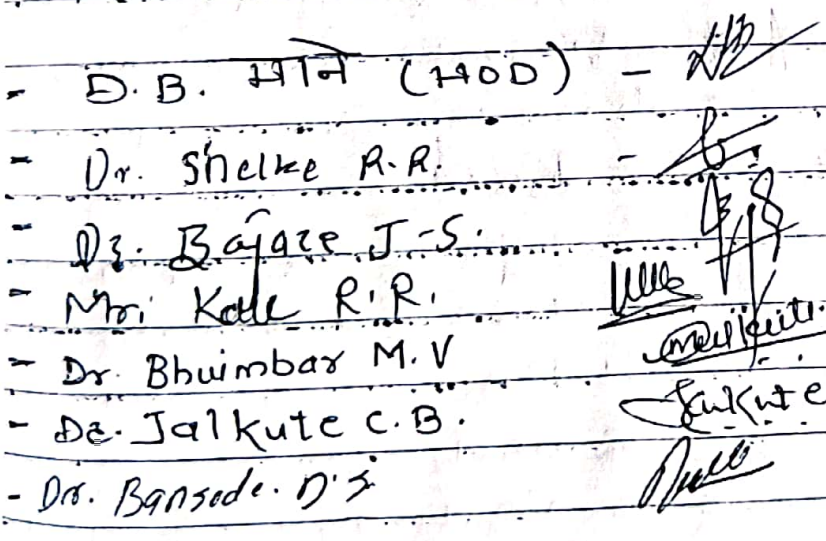 - D.B. माने (HOD) -
- Dr. Shelke R.R. -
- Dr. Bajare J.S.
- Mr. Kale R.R.
- Dr. Bhuimbar M.V
- Dr. Jalkute C.B. Jalkute
- Dr. Bansode. D.S